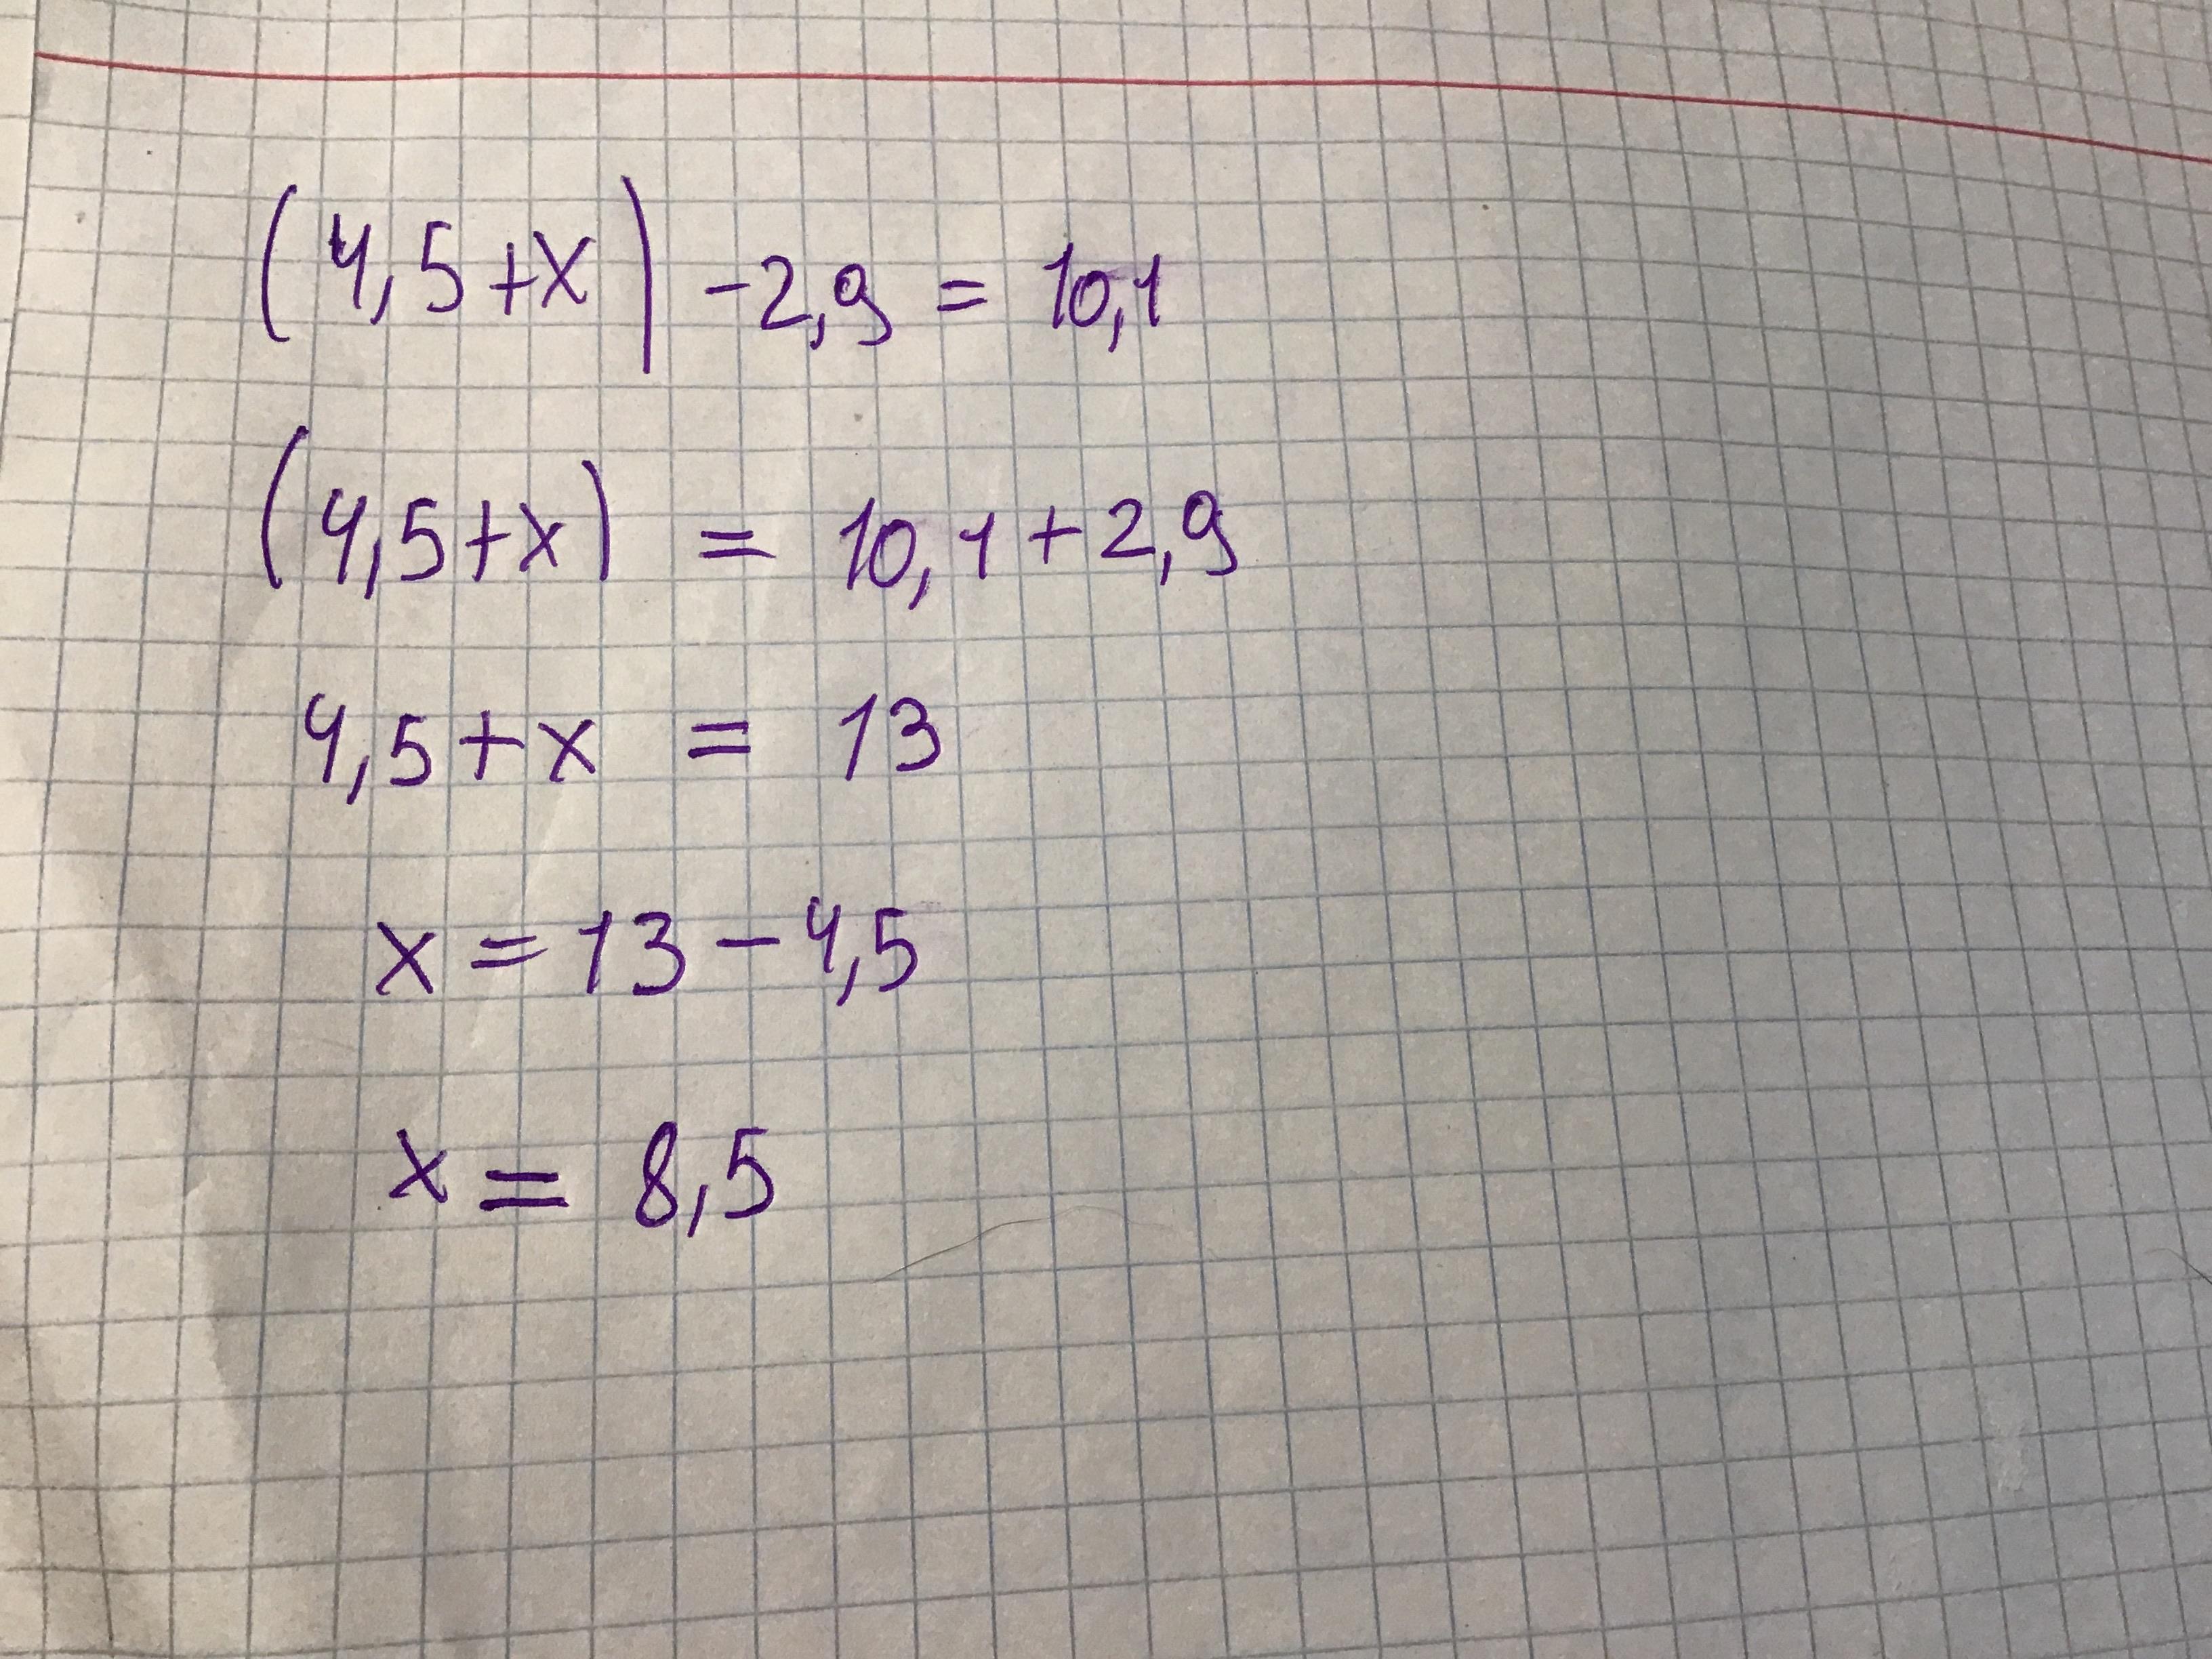 (4,5+x) -2,9 = 10,1
(4,5+x) = 10,1+2,9
4,5+x = 13
x = 13-4,5
x = 8,5